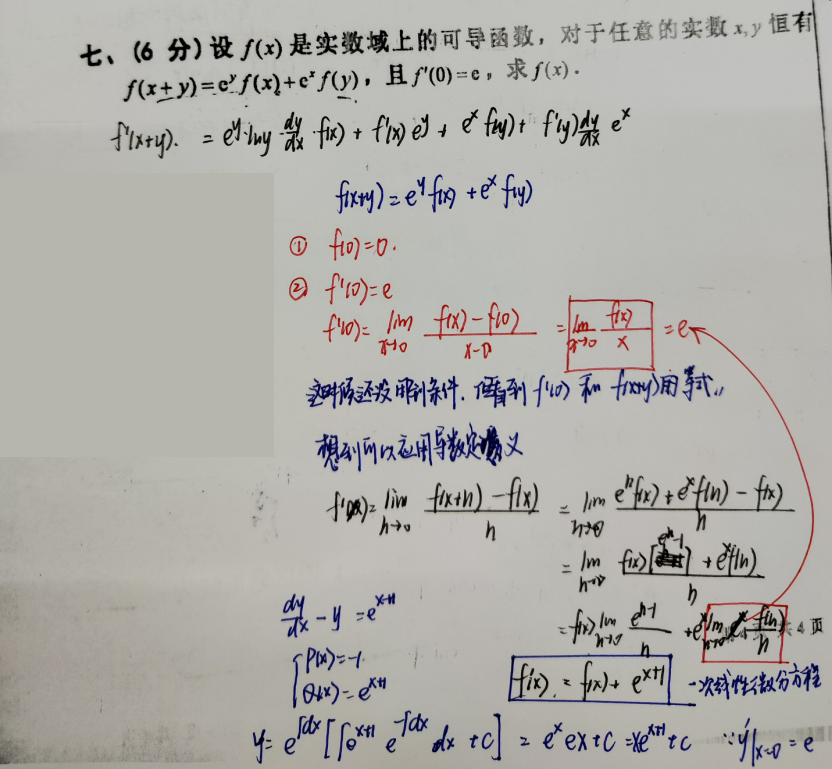 七、(6 分)设 f(x) 是实数域上的可导函数，对于任意的实数 x, y 恒有
f(x+y)=e^y f(x)+e^x f(y)，且 f'(0)=e，求 f(x).
f'(x+y). = e^y·lny dy/dx f(x) + f'(x) e^y + e^x f(y) + f'(y) dy/dx e^x
f(x+y) = e^y f(x) + e^x f(y)
① f(0)=0.
② f'(0)=e
f'(0)= lim x→0 (f(x)-f(0))/(x-0) = lim x→0 f(x)/x = e
这时候还没用到条件. 但看到 f'(0) 和 f(x+y)用等式,,
想到可以应用导数定义
f'(x)= lim h→0 (f(x+h)-f(x))/h = lim h→0 (e^h f(x)+e^x f(h)-f(x))/h
= lim h→0 (f(x)[e^h-1]+e^x f(h))/h
= f(x) lim h→0 (e^h-1)/h + e^x lim h→0 f(h)/h
共 4 页
dy/dx - y = e^(x+1)
{ P(x)=-1
Q(x)=e^(x+1)
f'(x) = f(x) + e^(x+1) 一次线性微分方程
y= e^∫dx [∫e^(x+1) e^-∫dx dx +C] = e^x ex+C = xe^(x+1)+C ∵y'|x=0 = e